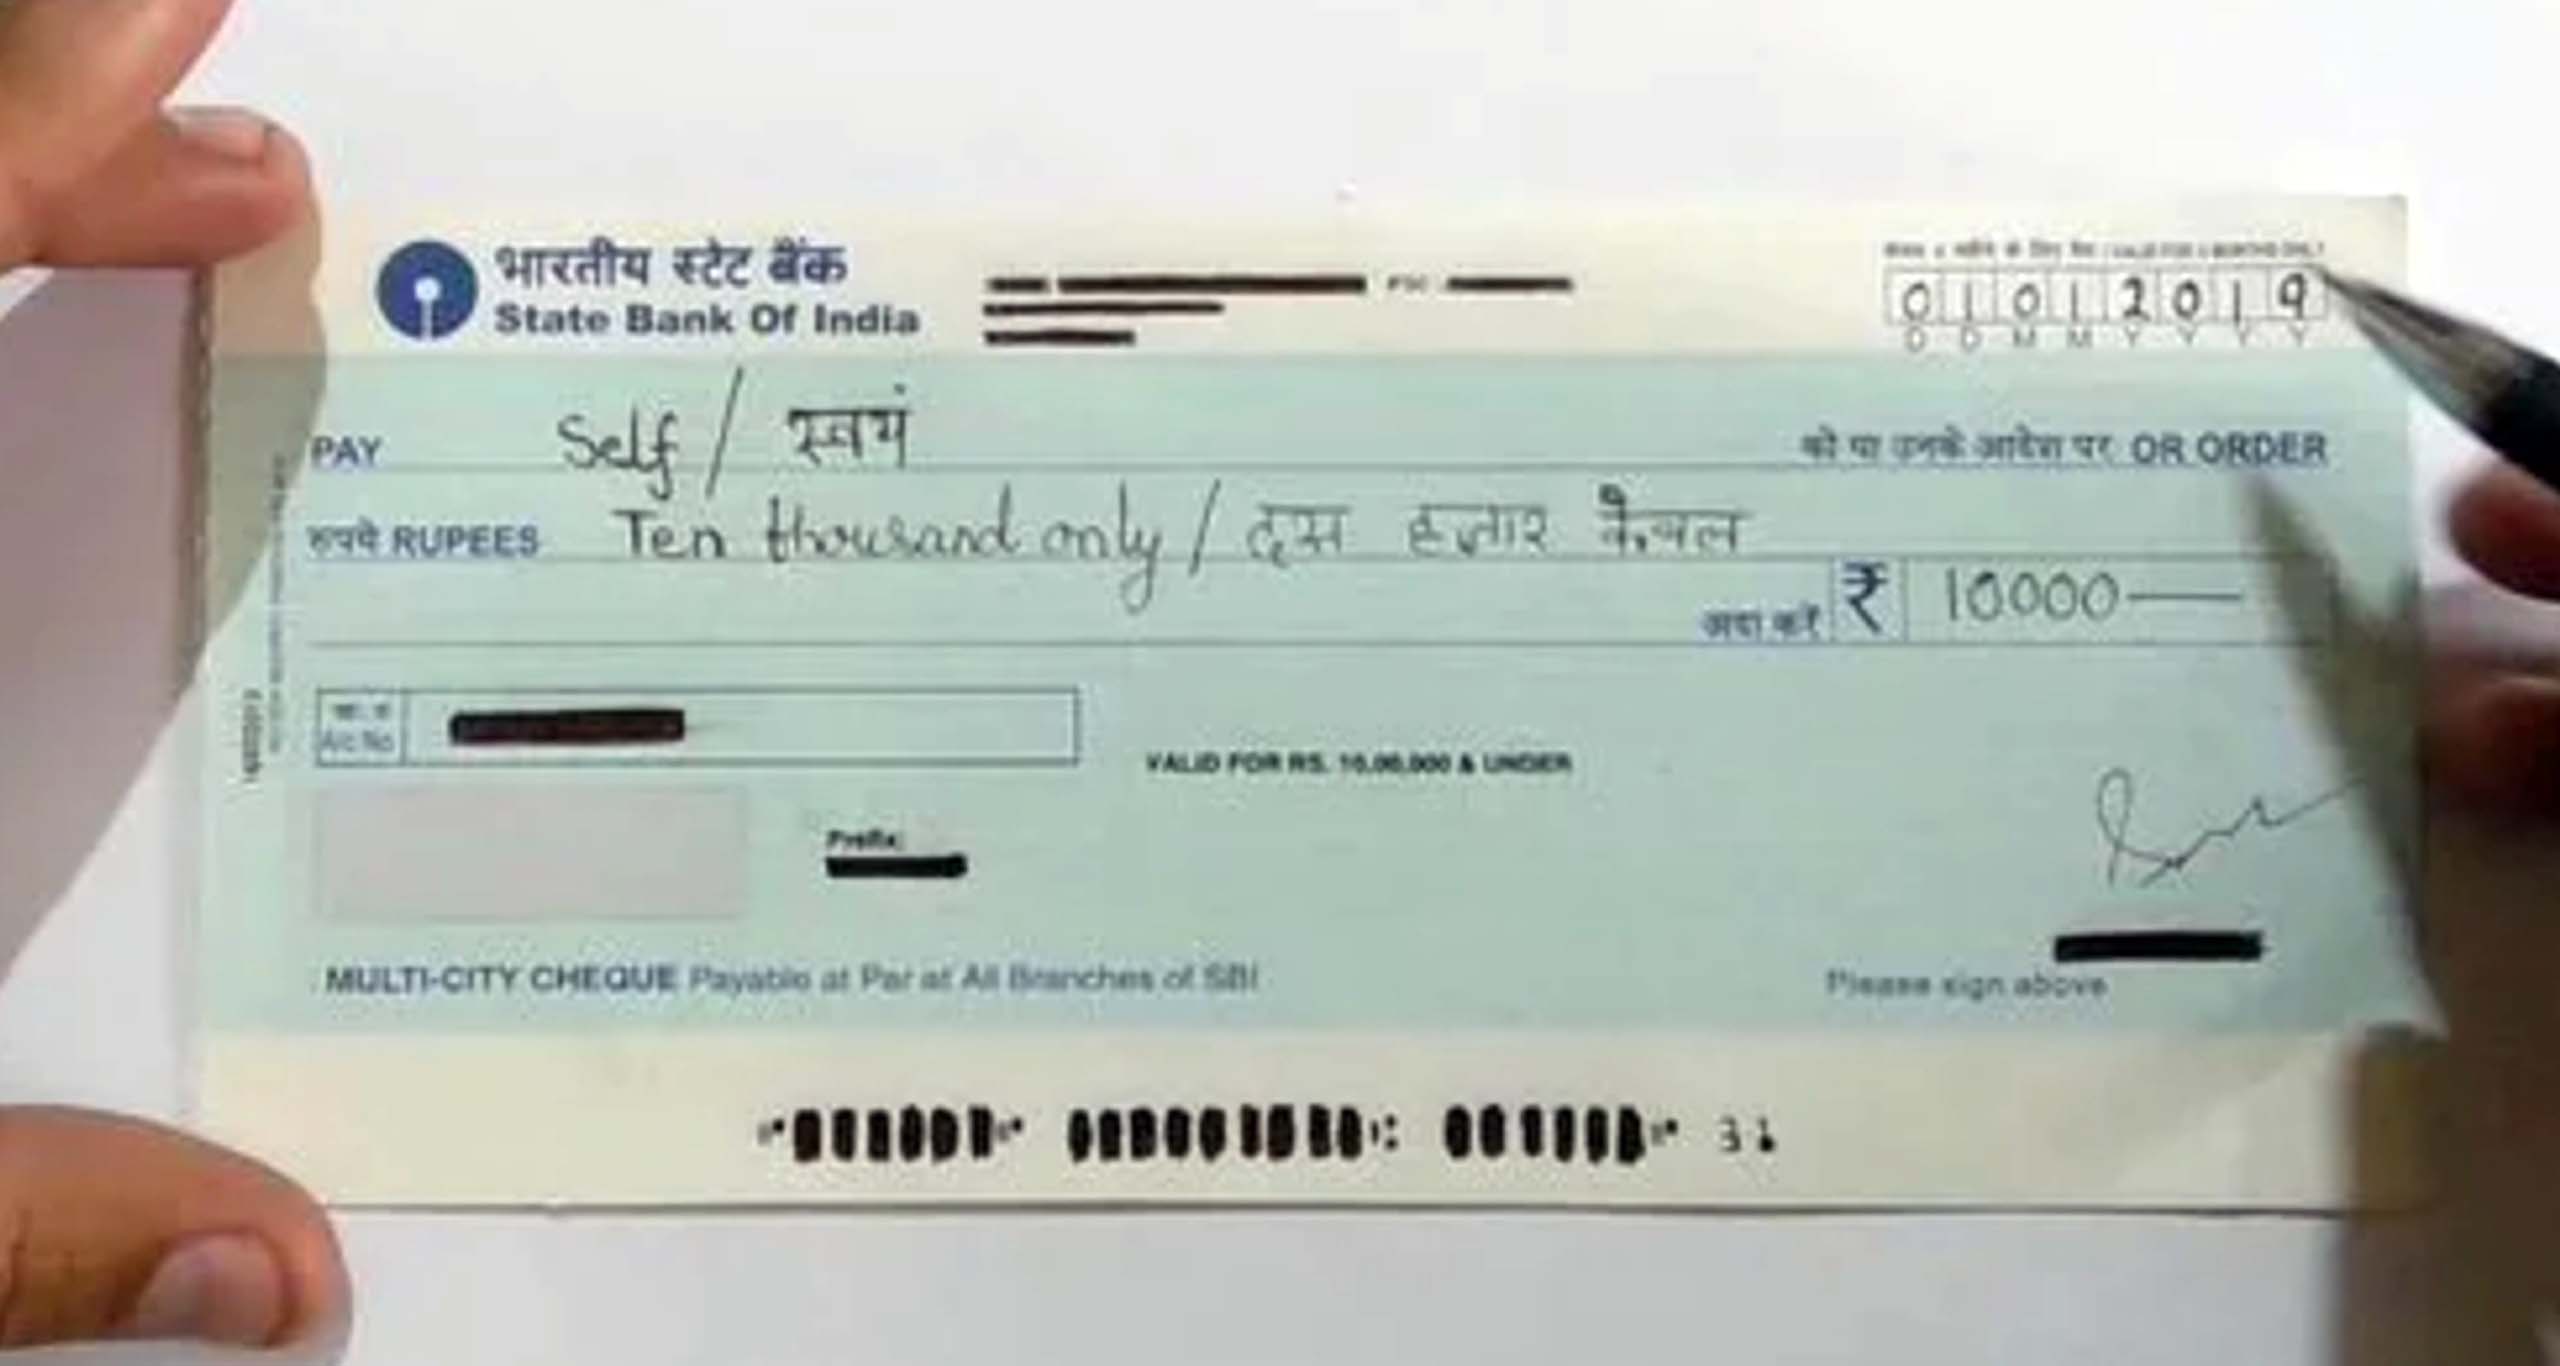 भारतीय स्टेट बैंक
State Bank Of India
VALID FOR 3 MONTHS ONLY
01012019
D D M M Y Y Y Y
PAY Self / स्वयं को या उनके आदेश पर OR ORDER
रुपये RUPEES Ten thousand only / दस हजार केवल
अदा करें ₹ 10000
A/c No.
VALID FOR RS. 10,00,000 & UNDER
Prefix:
MULTI-CITY CHEQUE Payable at Par at All Branches of SBI
Please sign above
31